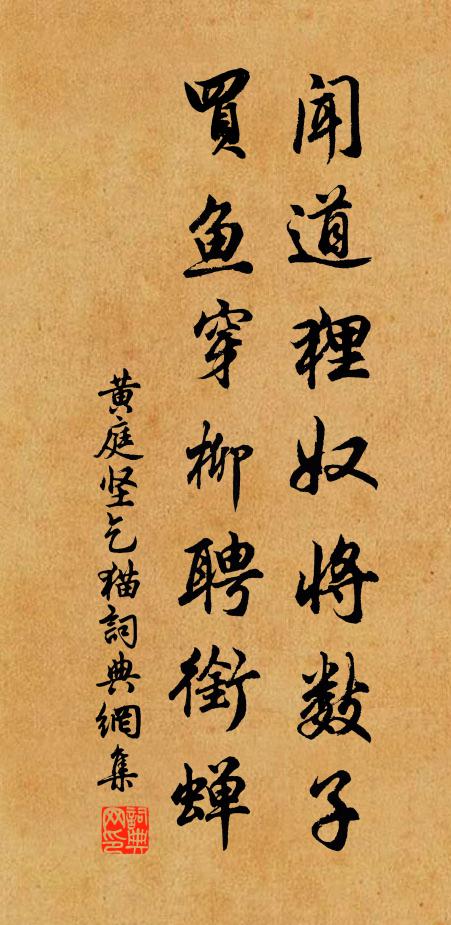 聞道狸奴将数子
買鱼穿柳聘銜蝉
黄庭坚乞猫詞典網集
詞典网印